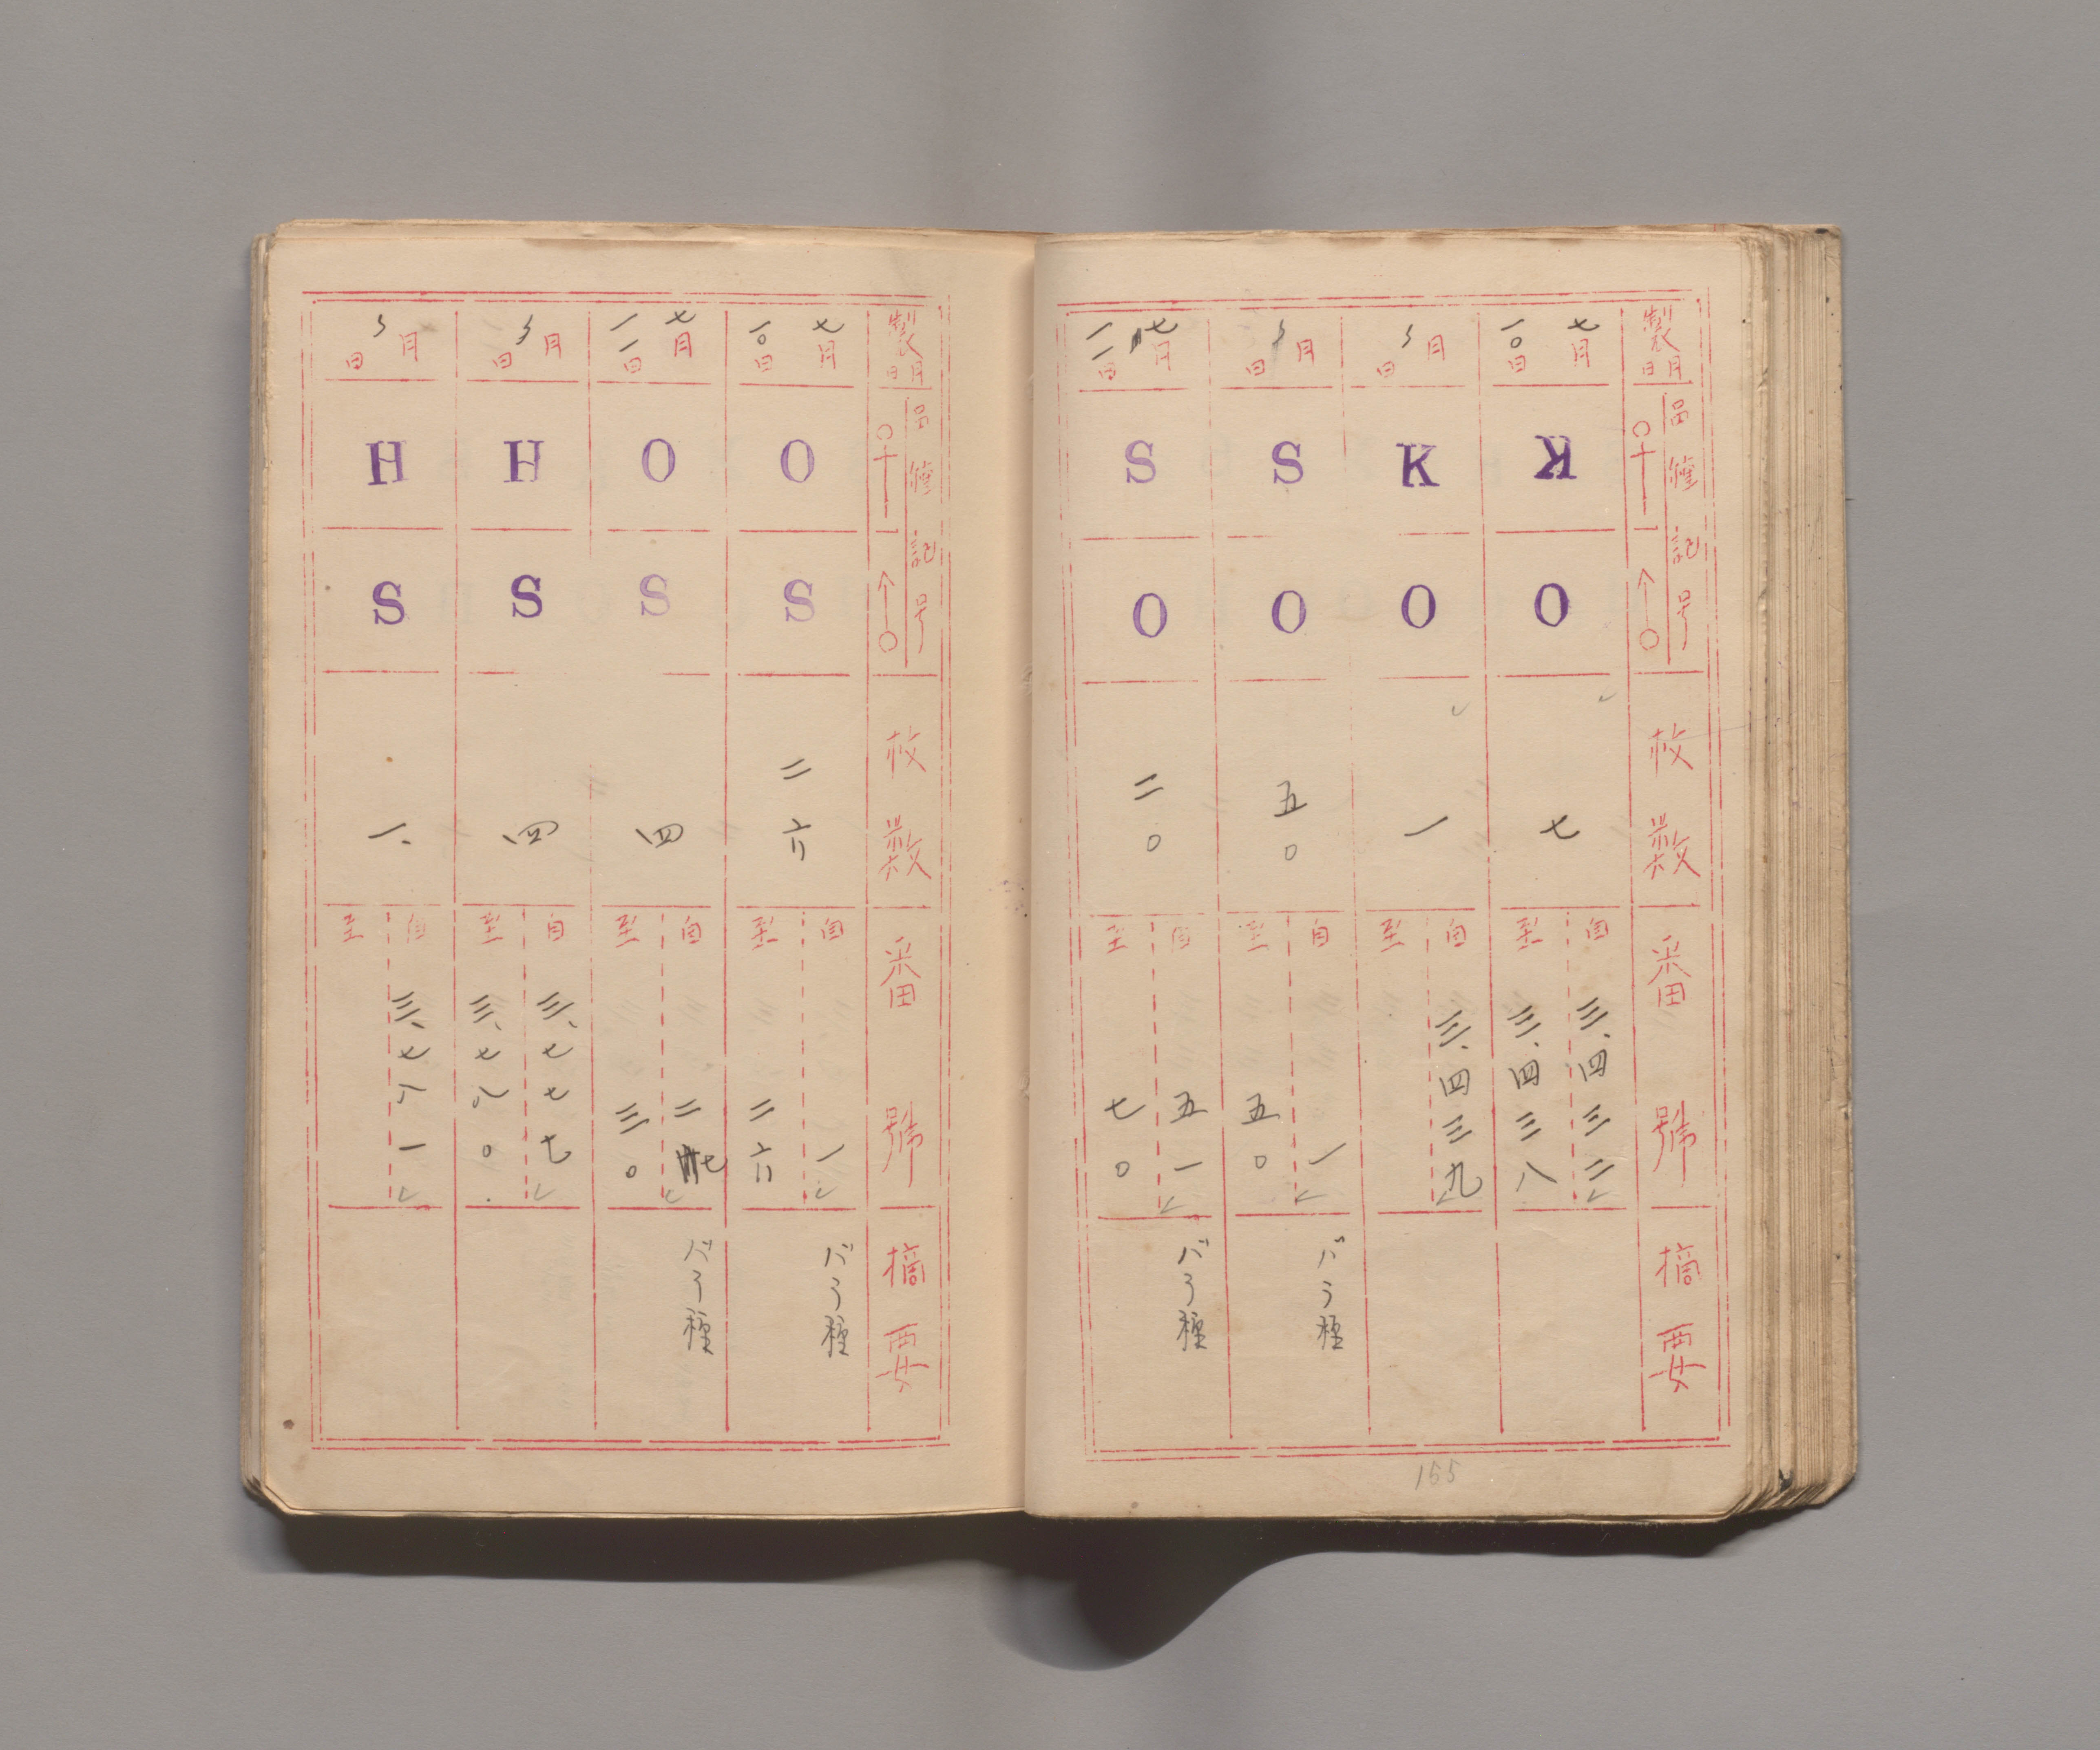 製月日
品種記号
枚数
番號
摘要
七月一〇日
K
O
七
自 三、四三二
至 三、四三八
〻月日
K
O
一
自 三、四三九
至
〻月日
S
O
五〇
自 一
至 五〇
バラ種
七月一一日
S
O
二〇
自 五一
至 七〇
バラ種
155
製月日
品種記号
枚数
番號
摘要
七月一〇日
O
S
二六
自 一
至 二六
バラ種
七月一一日
O
S
四
自 二七
至 三〇
バラ種
〻月日
H
S
四
自 三、七七七
至 三、七八〇
〻月日
H
S
一
自 三、七八一
至